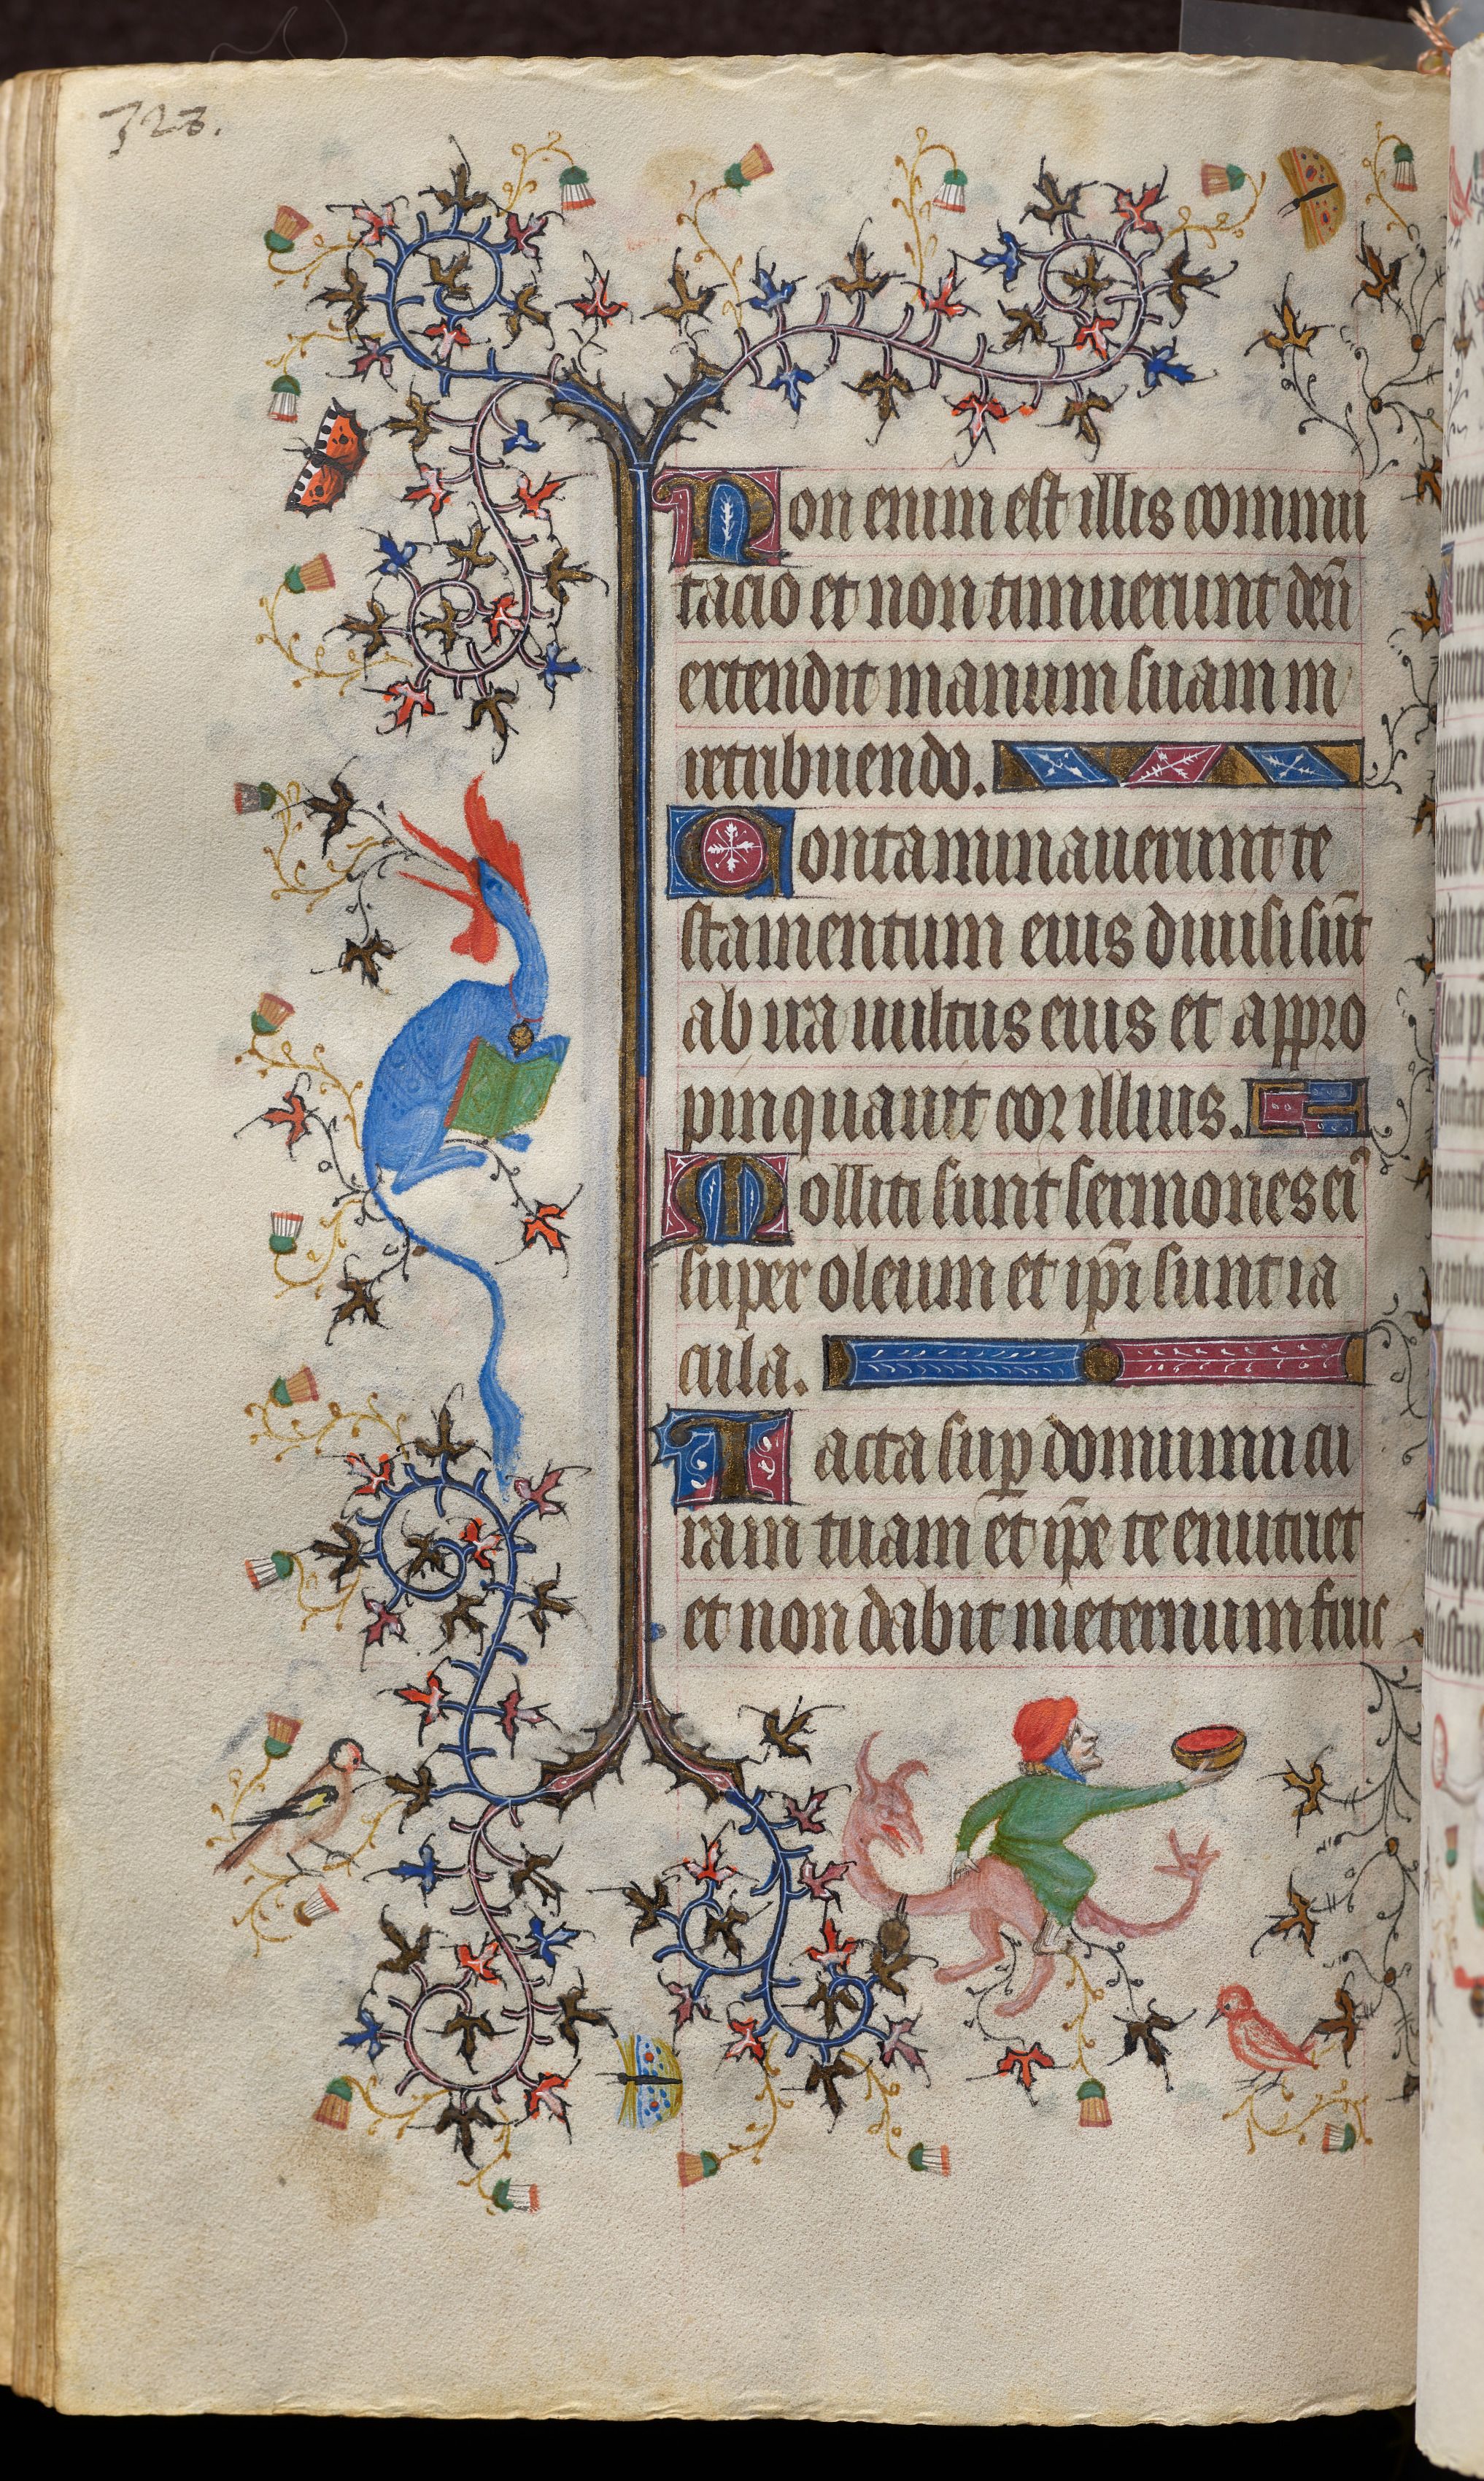 323.
Non enim est illis commu
tacio et non timuerunt deū
extendit manum suam in
retribuendo.
Contaminauerunt te
stamentum eius diuisi sūt
ab ira uultus eius et appro
pinquauit cor illius.
Molliti sunt sermones ei᷒
super oleum et ip̄i sunt ia
cula.
Iacta sup̱ dominum cu
ram tuam et ip̄e te enutriet
et non dabit in eternum fluc